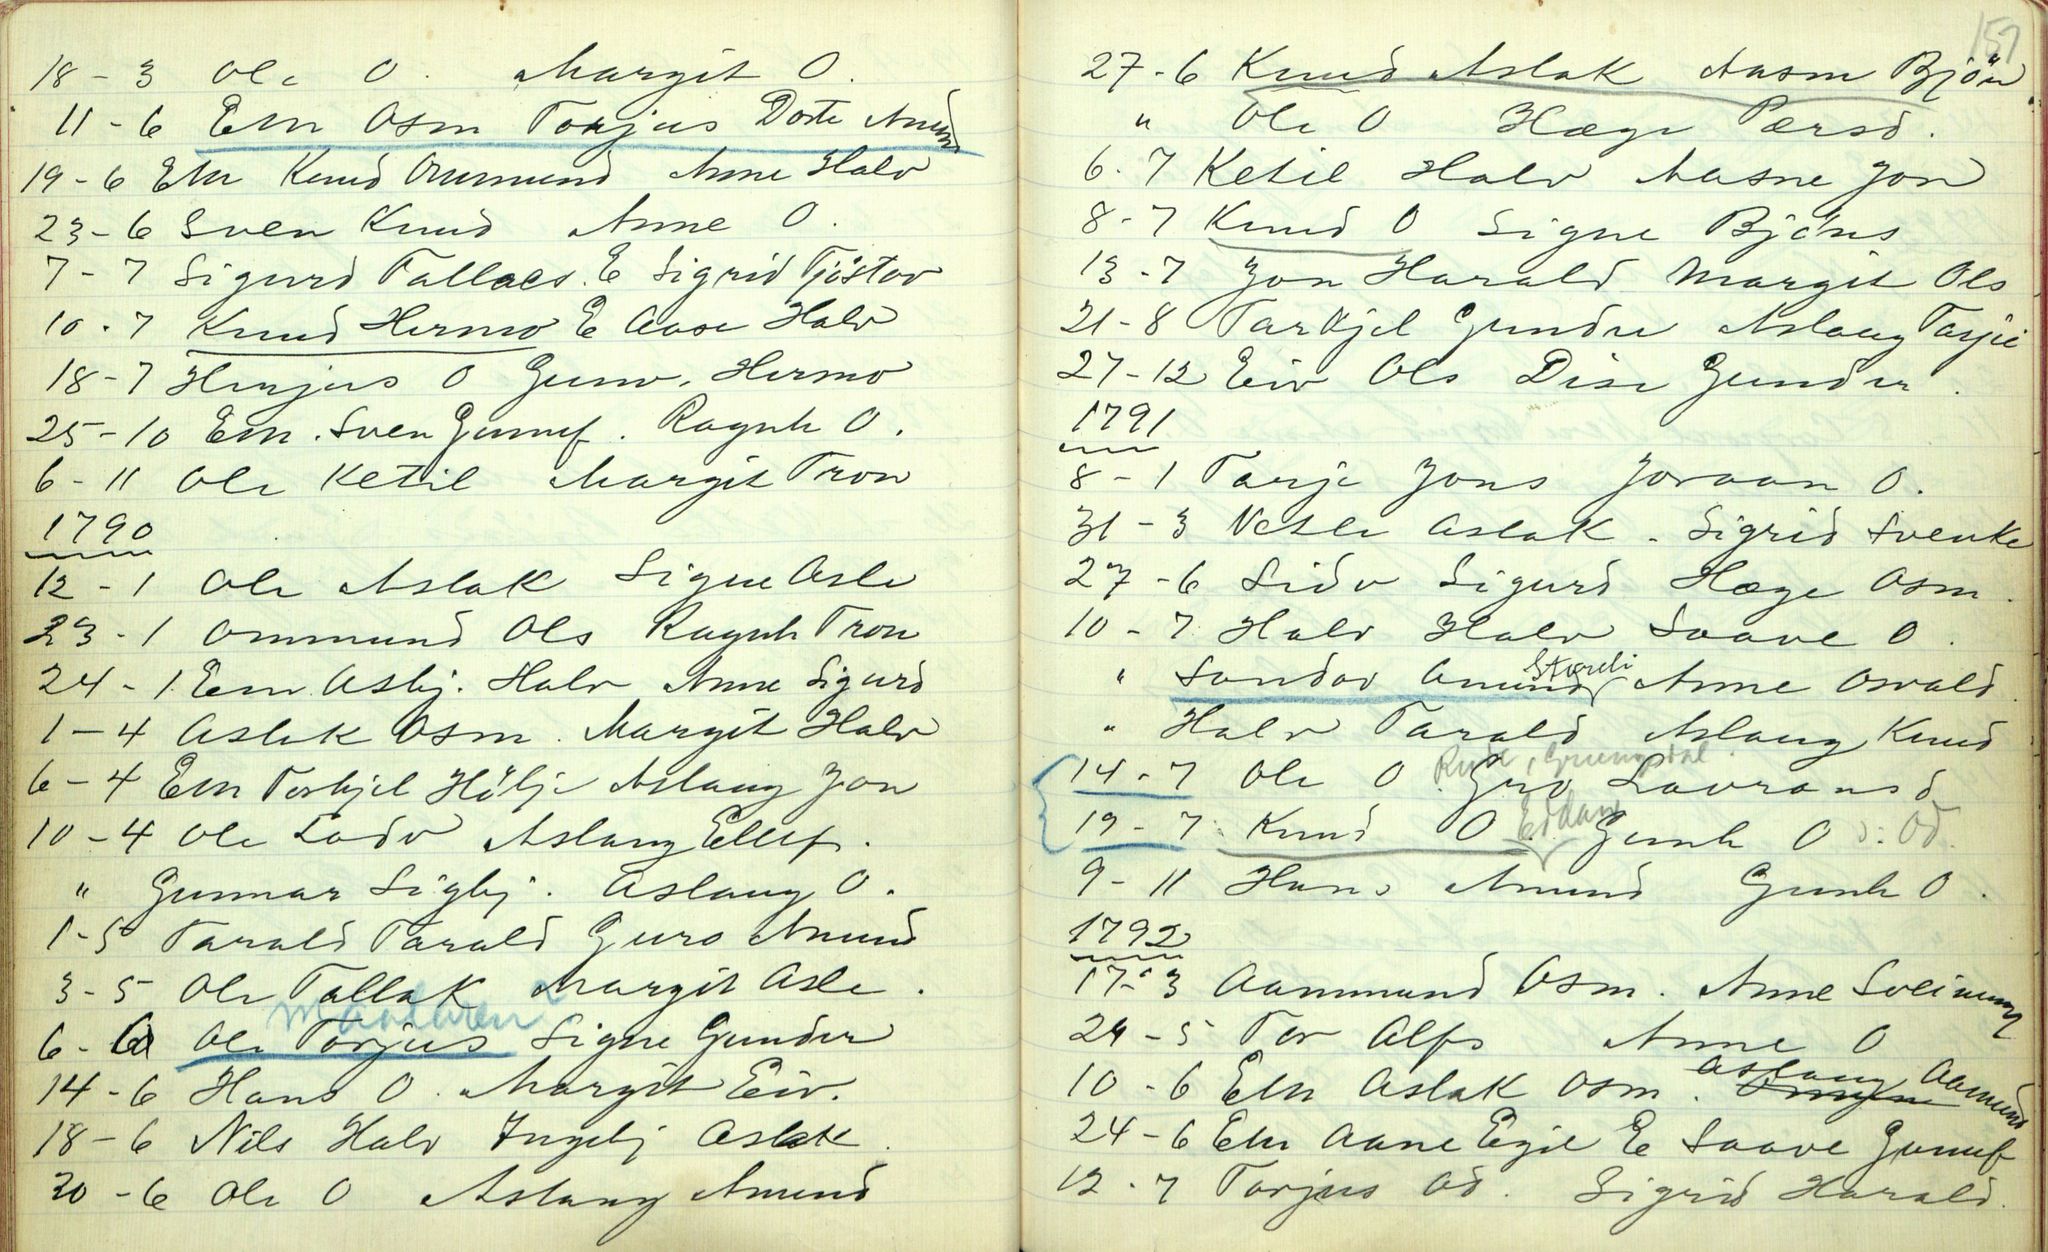 18 - 3 Ole O. Margit O.
11 - 6 Em Osm Torjus Dorte Amund
19 - 6 Em Knud Ommund Anne Halv
23 - 6 Sven Knud Anne O.
7 - 7 Sigurd Tallacs. E Sigrid Tjöstov
10 - 7 Knud Hermo E Aase Halv
18 - 7 Herjus O Gunv. Hermo
25 - 10 Em. Sven Gunuf. Ragnh O.
6 - 11 Ole Ketil Margit Tron
1790
12 - 1 Ole Aslak Signe Asle
23 - 1 Ommund Ols Ragnh Tron
24 - 1. Em Asbj. Halv Anne Sigurd
1 - 4 Aslak Osm. Margit Halv
6 - 4 Em Torkjel Hölje Aslaug Jon
10 - 4 Ole Lodv Aslaug Ellef.
" Gunnar Sigbj. Aslaug O.
1 - 5 Tarald Tarald Guro Amund
3 - 5 Ole Tallak Margit Asle.
6 - 6 Ole Torjus Signe Gunder
14 - 6 Hans O. Margit Eiv.
18 - 6 Nils Halv Ingebj Aslak.
20 - 6 Ole O Aslaug Amund
157
27 - 6 Knud Aslak Aasm Björn
" Ole O Hæge Persd.
6 - 7 Ketil Halv Aasne Jon
8 - 7 Knud O Signe Björns
13 - 7 Jon Harald Margit Ols
21 - 8 Tarkjel Gundre Aslaug Tarjei
27 - 12 Eiv Ols Dise Gunder.
1791
8 - 1 Tarje Jons Joraan O.
31 - 3 Vetle Aslak - Sigrid Svenke
27 - 6 Sidv Sigurd Hæge Osm.
10 - 7 Halv Halv Saave O.
" Sondov Amund Anne Osvald.
" Halv Tarald Aslaug Knud
Rude, Grungedal.
14 - 7 Ole O Gro Lavransd
19 - 7 Knud O. Gunh O
9 - 11 Hans Amund Gunh O.
1792
17 - 3 Aammund Osm. Anne Sveinung
24 - 5 Tor Alfs Anne O
10 - 6 Em Aslak Osm. Aslaug Aamund
24 - 6 Em Aane Egil E Saave Gunuf
12 - 7 Torjus Od. Sigrid Harald.